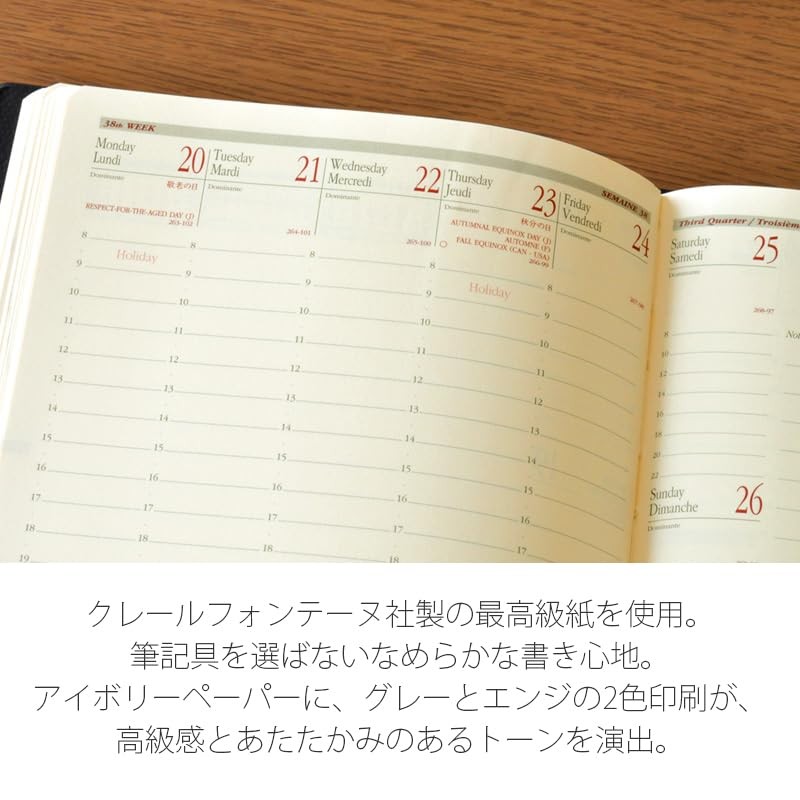 38th WEEK
SEMAINE 38
Monday
Lundi
20
Dominante
敬老の日
RESPECT-FOR-THE-AGED DAY (J)
263-102
Tuesday
Mardi
21
Dominante
264-101
Wednesday
Mercredi
22
Dominante
265-100
Thursday
Jeudi
23
Dominante
秋分の日
AUTUMNAL EQUINOX DAY (J)
AUTOMNE (F)
FALL EQUINOX (CAN - USA)
266-99
Friday
Vendredi
24
Dominante
Holiday
Holiday
8
9
10
11
12
13
14
15
16
17
18
19
8
9
10
11
12
13
14
15
16
17
18
8
9
10
11
12
13
14
15
16
17
18
8
9
10
11
12
13
14
15
16
17
8
9
10
11
12
13
14
15
16
17
Third Quarter / Troisièm
Saturday
Samedi
25
Dominante
268-97
8
10
12
14
16
18
20
22
Sunday
Dimanche
26
Dominante
クレールフォンテーヌ社製の最高級紙を使用。
筆記具を選ばないなめらかな書き心地。
アイボリーペーパーに、グレーとエンジの2色印刷が、
高級感とあたたかみのあるトーンを演出。